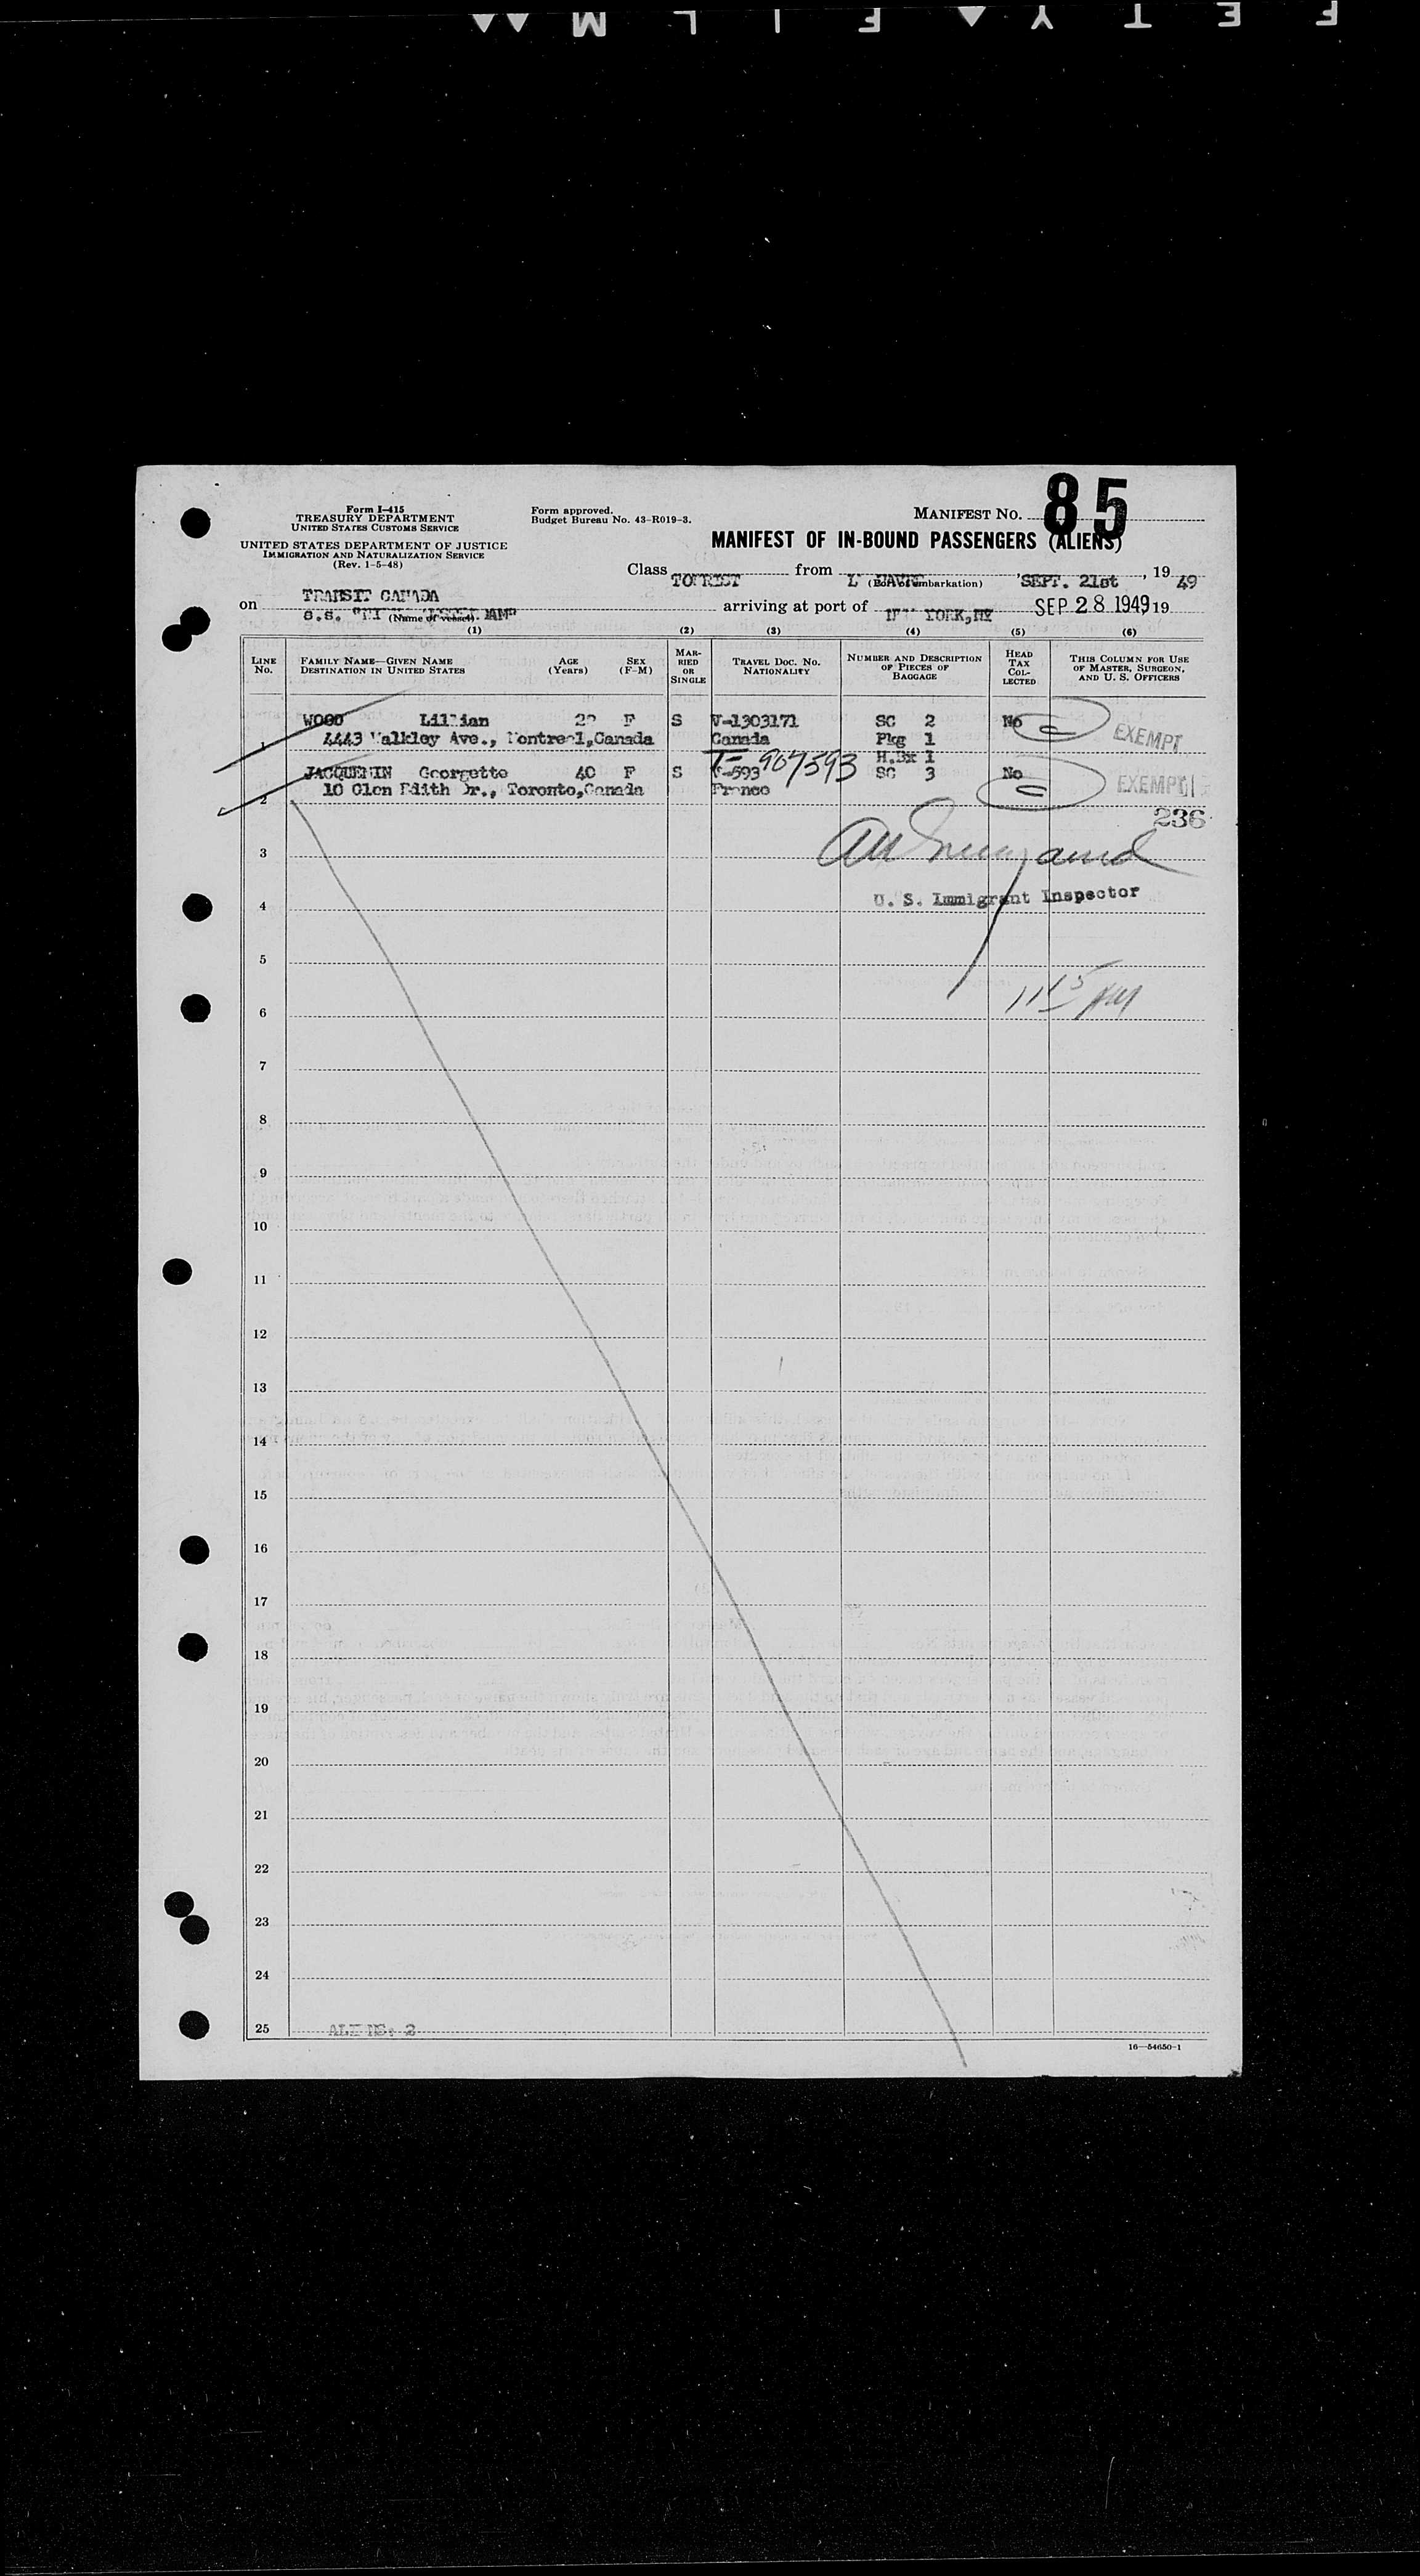 SAFETY FILM
85
Form I-415
TREASURY DEPARTMENT
UNITED STATES CUSTOMS SERVICE
Form approved.
Budget Bureau No. 43-R019-3.
MANIFEST No.
UNITED STATES DEPARTMENT OF JUSTICE
IMMIGRATION AND NATURALIZATION SERVICE
(Rev. 1-5-48)
MANIFEST OF IN-BOUND PASSENGERS (ALIENS)
Class TOURIST from (Port of embarkation), SEPT. 21st, 19 49
TRANSIT CANADA
on S.S. (Name of vessel) arriving at port of NEW YORK, NY SEP 28 1949 19
(1) (2) (3) (4) (5) (6)
LINE No. FAMILY NAME—GIVEN NAME DESTINATION IN UNITED STATES AGE (Years) SEX (F-M) MARRIED OR SINGLE TRAVEL DOC. No. NATIONALITY NUMBER AND DESCRIPTION OF PIECES OF BAGGAGE HEAD TAX COLLECTED THIS COLUMN FOR USE OF MASTER, SURGEON, AND U. S. OFFICERS
WOOD Lillian F S V-1303171 SC 2 No
1 4443 Walkley Ave., Montreal, Canada Canada Pkg 1 EXEMPT
H.Bx 1
T-907593
JACQUEMIN Georgette 40 F S V-593 SC 3 No
2 10 Glen Edith Dr., Toronto, Canada France EXEMPT
236
3
4 U. S. Immigrant Inspector
5
6 1115 AM
7
8
9
10
11
12
13
14
15
16
17
18
19
20
21
22
23
24
25 ALIENS: 2
16—54650-1